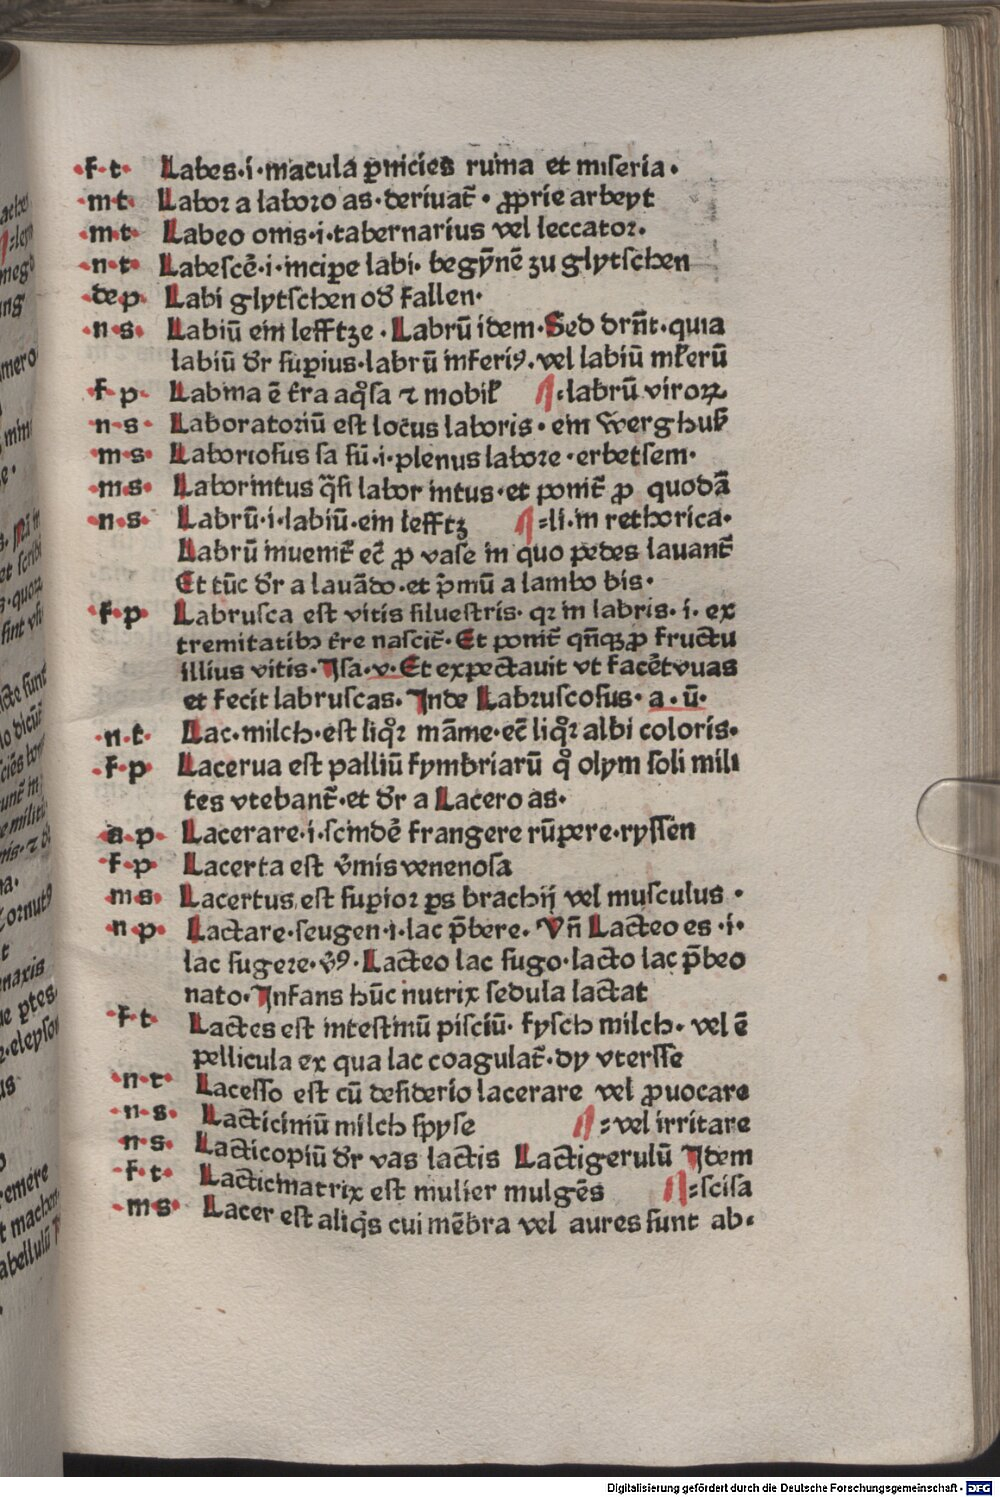 ·f·t· Labes·i·macula ꝑnicies ruina et miseria·
·m·t· Labor a laboro as·deriuat̄· ꝓprie arbeyt
·m·t· Labeo onis·i·tabernarius vel leccator·
·n·t· Labescē·i·incipe labi· begȳnē zu glytschen
·de p· Labi glytschen od̛ fallen·
·n·s· Labiū ein lefftze·Labrū idem·Sed drn̄t·quia
labiū dr̛ supius·labrū inferiꝰ·vel labiū mlierū
·f·p· Labina ē tr̄a aq̊sa ⁊ mobil̛ ¶=labrū viroꝝ
·n·s· Laboratoriū est locus laboris·ein werghuß
·m·s· Laboriosus sa sū·i·plenus labore·erbetsem·
·m·s· Laborintus q̄si labor intus·et ponit̄ ꝓ quodā
·n·s· Labrū·i·labiū·ein lefftz ¶=li·in rethorica·
Labrū inuenit̄ ec̄ ꝓ vase in quo pedes lauant̄
Et tūc dr̛ a lauādo·et p̄mū a lambo bis·
·f·p· Labrusca est vitis siluestris· qꝛ in labris·i·ex
tremitatibꝫ tr̄e nascit̄·Et ponit̄ qn̄qꝫ ꝓ fructu
illius vitis·Isa·v·Et expectauit vt facēt vuas
et fecit labruscas·Inde Labruscosus·a·ū·
·n·t· Lac·milch·est liq̊ꝛ māme·ec̄ liq̊ꝛ albi coloris·
·f·p· Lacerua est palliū fymbriarū q̊ olym soli mili
tes vtebant̄·et dr̛ a Lacero as·
·a·p· Lacerare·i·scindē frangere rūpere·ryssen
·f·p· Lacerta est v̛mis venenosa
·m·s· Lacertus est supior ps brachij vel musculus·
·n·p· Lactare·seugen·i·lac p̄bere·Vn̄ Lacteo es·i·
lac sugere·v̛ꝰ·Lacteo lac sugo·lacto lac p̄beo
nato·Infans hūc nutrix sedula lactat
·f·t· Lactes est intestinū pisciū·fysch milch·vel ē
pellicula ex qua lac coagulat̄·dy vtersse
·n·t· Lacesso est cū desiderio lacerare vel ꝓuocare
·n·s· Lacticiniū milch spyse ¶=vel irritare
·n·s· Lacticopiū dr̛ vas lactis Lactigerulū Idem
·f·t· Lacticinatrix est mulier mulgēs ¶=scisa
·m·s· Lacer est aliq̇s cui mēbra vel aures sunt ab·
Digitalisierung gefördert durch die Deutsche Forschungsgemeinschaft - DFG